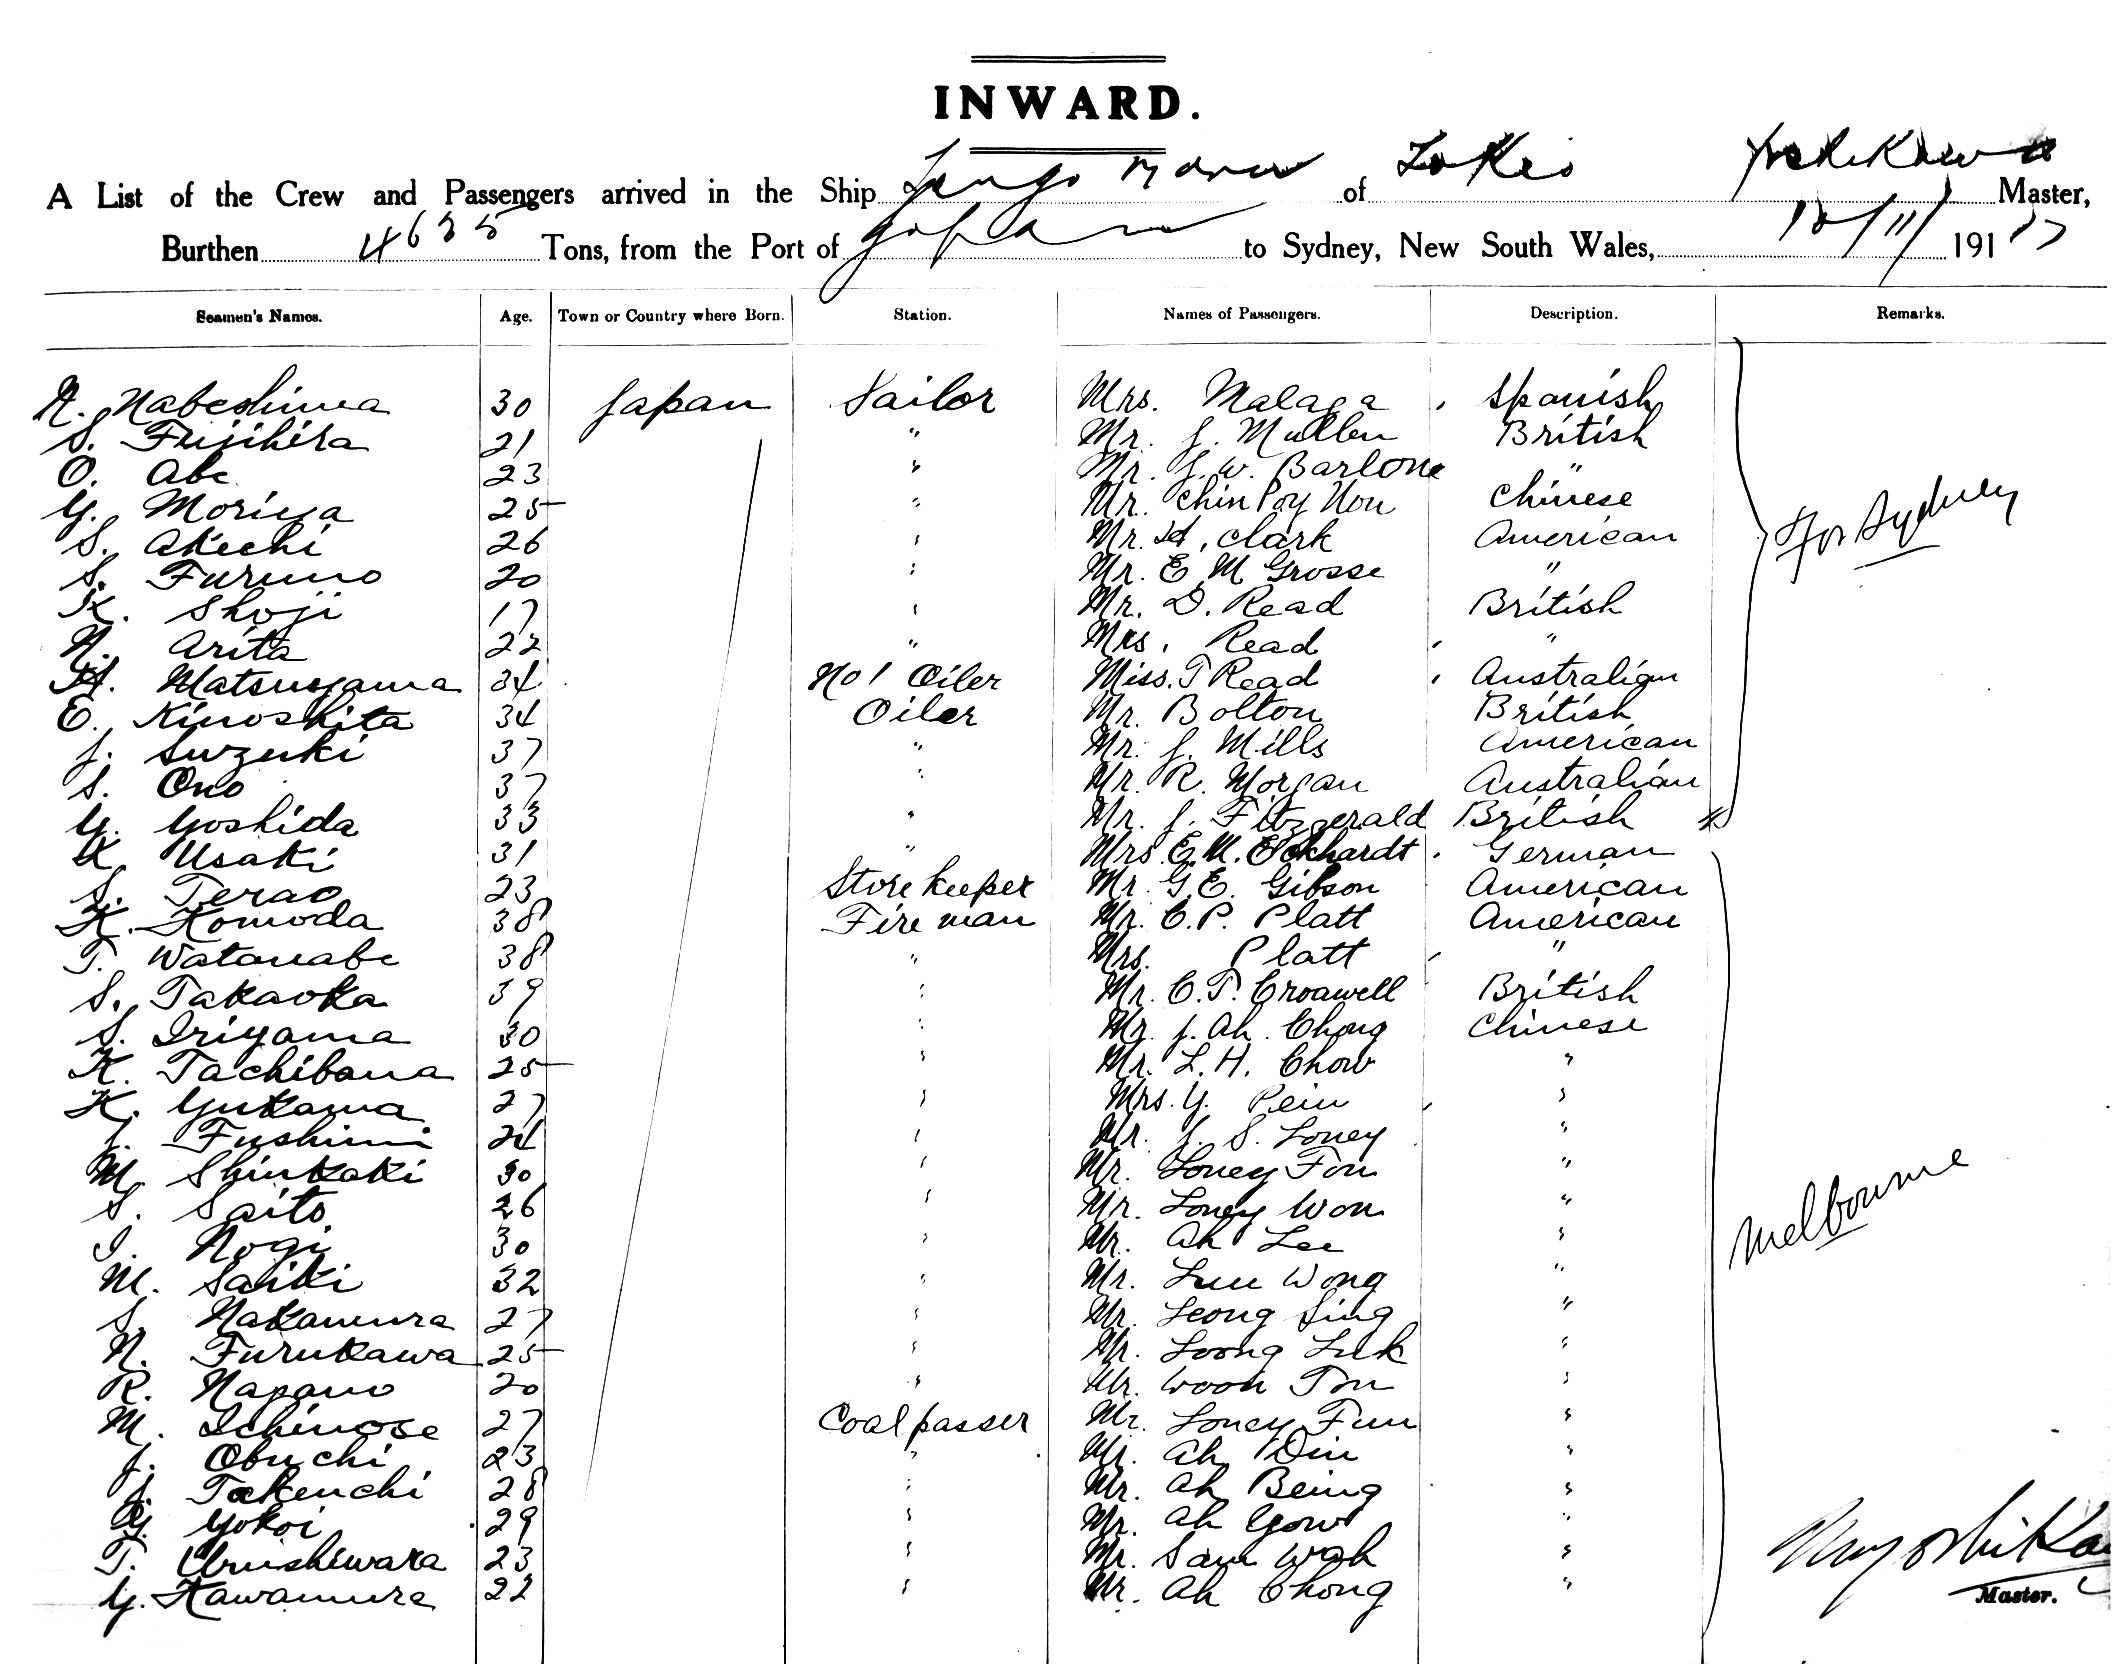 INWARD.
A List of the Crew and Passengers arrived in the Ship Tango Maru of Tokio Master,
Burthen 4635 Tons, from the Port of Japan to Sydney, New South Wales, 12/11/ 1917
Seamen's Names. Age. Town or Country where Born. Station. Names of Passengers. Description. Remarks.
N. Nabeshima 30 Japan Sailor Mrs. Malaga Spanish
S. Fujihira 21 " Mr. J. Mullen British
O. Abe 23 " Mr. J. W. Barlone "
Y. Moriya 25 " Mr. Chin Poy Hon Chinese
S. Akechi 26 " Mr. H. Clark American
S. Furuno 20 " Mr. E M Grosse "
K. Shoji 17 " Mr. D. Read British
N. Arita 22 " Mrs. Read "
H. Matsuyama 34 No 1 Oiler Miss. T Read Australian
E. Kinoshita 34 Oiler Mr. Bolton British
J. Suzuki 37 " Mr. J. Mills American
S. Ono 37 " Mr. R. Morgan Australian
Y. Yoshida 33 " Mr. J. Fitzgerald British
K. Usaki 31 " Mrs E. M. Eckhardt German
S. Terao 23 Storekeeper Mr. G. E. Gibson American
K. Komoda 38 Fireman Mr. C. P. Platt American
T. Watanabe 38 " Mrs. Platt "
S. Takaoka 39 " Mr. C. T. Croawell British
S. Iriyama 30 " Mr. J. Ah Chong Chinese
K. Tachibana 25 " Mr. L. H. Chow "
K. Yukawa 27 " Mrs. Y. Pein "
J. Fushimi 24 " Mr. J. S. Loney "
M. Shinkaki 30 " Mr. Loney Fon "
S. Saito 26 " Mr. Loney Won "
I. Nogi 30 " Mr. Ah Lee "
M. Saiki 32 " Mr. Lun Wong "
S. Nakamura 27 " Mr. Leong Sing "
N. Furukawa 25 " Mr. Loong Luk "
R. Nagano 20 " Mr. Woon Ton "
M. Ichinose 27 Coal passer Mr. Loney Fun "
J. Obuchi 23 " Mr. Ah Din "
J. Takeuchi 28 " Mr. Ah Being "
Y. Yokoi 29 " Mr. Ah Gow "
T. Urushiwara 23 " Mr. Sam Wah "
Y. Kawamura 22 " Mr. Ah Chong "
For Sydney
Melbourne
Master.